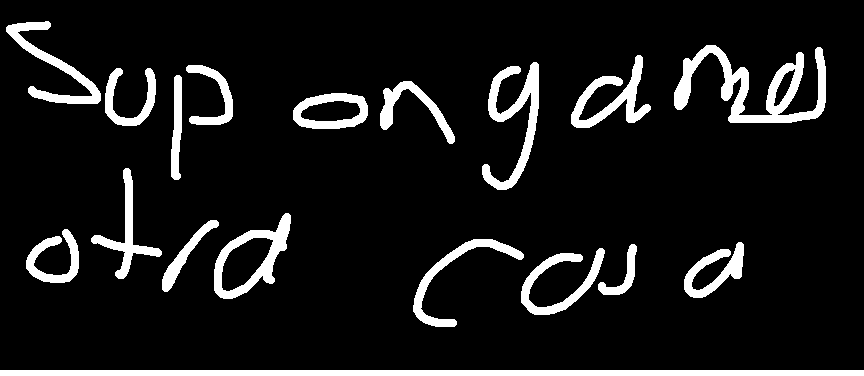 Supongamos
otra cosa